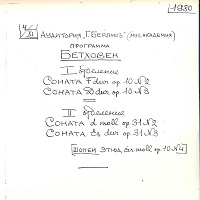 1980
4/XI Аудитория „Г. Берлиоз" (муз. академия)
программа
Бетховен
I отделение
Соната F dur op. 10 №2
Соната D dur op. 10 №3
II отделение
Соната d moll op. 31 №2
Соната Es dur op. 31 №3
Шопен этюд es moll op. 10 №4